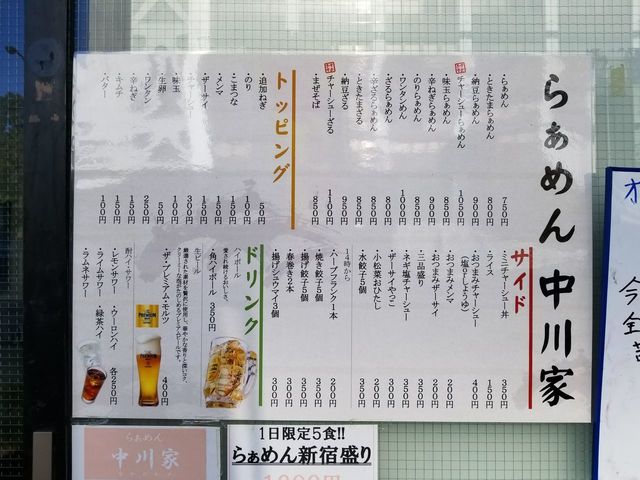 らぁめん 中川家
・らぁめん 750円
・ときたまらぁめん 800円
・納豆らぁめん 900円
チャーシューらぁめん 1050円
・味玉らぁめん 850円
・辛ねぎらぁめん 850円
・のりらぁめん 850円
・ワンタンめん 1000円
・ざるらぁめん 800円
・辛ざるらぁめん 850円
・ときたまざる 850円
・納豆ざる 950円
チャーシューざる 1100円
・まぜそば 850円
トッピング
・追加ねぎ 50円
・のり 100円
・こまつな 150円
・メンマ 150円
・ザーサイ 150円
・チャーシュー 300円
・味玉 100円
・生卵 50円
・ワンタン 250円
・辛ねぎ 150円
・キムチ 150円
・バター 100円
サイド
・ミニチャーシュー丼 350円
・ライス 150円
・おつまみチャーシュー 400円
(塩orしょうゆ)
・おつまみメンマ 200円
・おつまみザーサイ 200円
・三品盛り
・ネギ塩チャーシュー 350円
・ザーサイやっこ 250円
・小松菜おひたし 200円
・水餃子5個 350円
14時から
・ハーブフランク1本 200円
・焼き餃子5個 350円
・揚げ餃子5個 350円
・春巻き2本 300円
・揚げシュウマイ3個 300円
ドリンク
ハイボール
愛され続けるおいしさ。
・角ハイボール 350円
生ビール
厳選された素材を贅沢に使用し、華やかな香りと深いコク、
クリーミーな泡立ちのしめるプレミアムビールです。
・ザ・プレミアム・モルツ 400円
酎ハイ・サワー
・レモンサワー ・ウーロンハイ
・ライムサワー ・緑茶ハイ
・ラムネサワー 各250円
らぁめん
中川家
1日限定5食!!
らぁめん新宿盛り